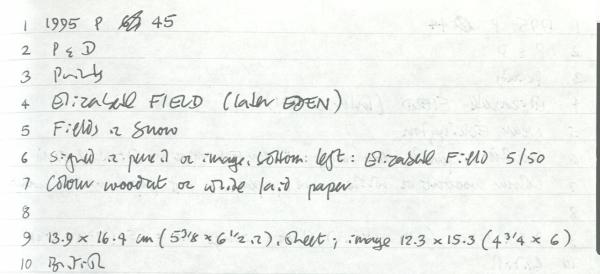 1 1995 P 45
2 P & D
3 Prints
4 Elizabeth FIELD (later EDEN)
5 Fields in Snow
6 Signed in pencil on image, bottom left: Elizabeth Field 5/50
7 Colour woodcut on white laid paper
8
9 13.9 x 16.4 cm (5 3/8 x 6 1/2 in), sheet; image 12.3 x 15.3 (4 3/4 x 6)
10 British